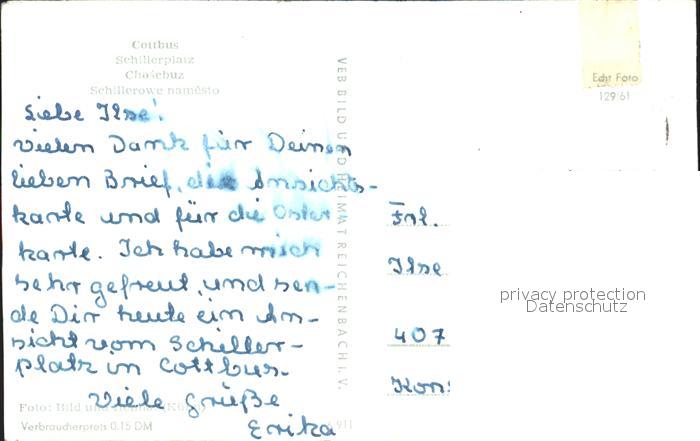 Cottbus
Schillerplatz
Chośebuz
Schillerowe naměsto
Liebe Ilse!
vielen Dank für Deinen
lieben Brief, die Ansichts-
karte und für die Oster
karte. Ich habe mich
sehr gefreut, und sen-
de Dir heute ein An-
sicht vom Schiller-
platz in Cottbus.
Viele Grüße
Erika
Foto: Bild und
Verbraucherpreis 0,15 DM
VEB BILD UND HEIMAT REICHENBACH I. V.
Echt Foto
129/61
Frl.
Ilse
407
Kon
privacy protection
Datenschutz